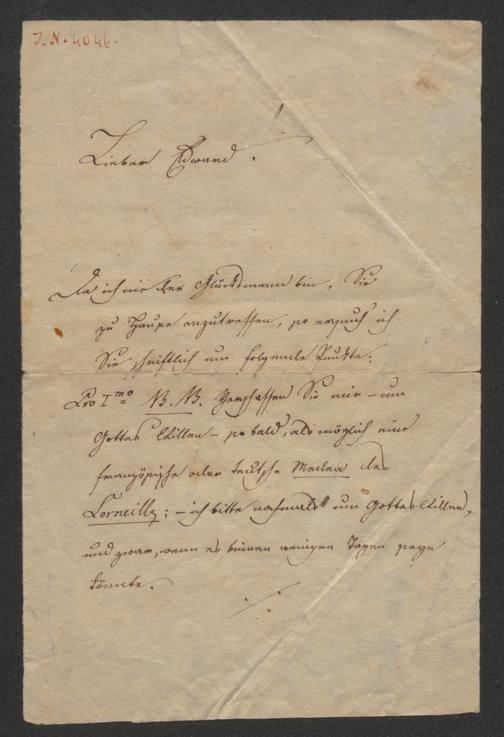 J. N. 4046.
Lieber Edward.
Da ich nie der Glücksmann bin, Sie
zu Hause anzutreffen, so ersuch ich
Sie schriftlich um folgende Punkte.
Pro I<sup>mo</sup> N.B. Verschaffen Sie mir – um
Gottes Willen – so bald, als möglich eine
französische oder teutsche Medea des
Corneille; – ich bitte nochmals um Gottes Willen,
und zwar, wenn es binnen wenigen Tagen seyn
könnte. –